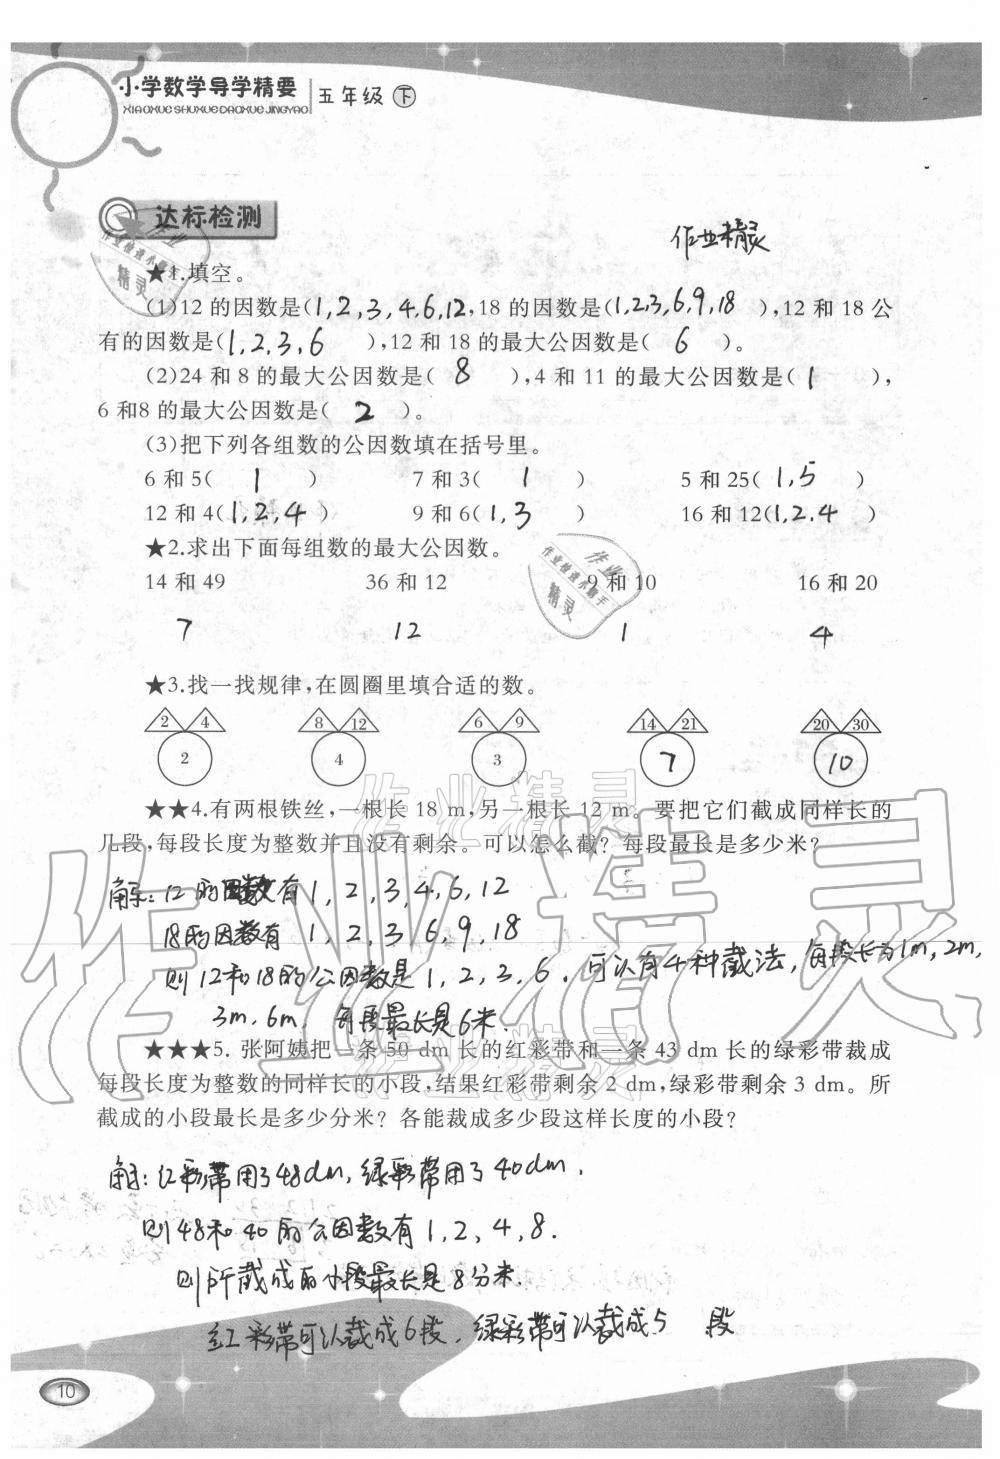 小学数学导学精要
XIAOXUE SHUXUE DAOXUE JINGYAO
五年级 下
达标检测
作业精灵
★1.填空。
(1)12 的因数是(1,2,3,4,6,12,18 的因数是(1,2,3,6,9,18 ),12 和 18 公
有的因数是(1,2,3,6 ),12 和 18 的最大公因数是( 6 )。
(2)24 和 8 的最大公因数是( 8 ),4 和 11 的最大公因数是( 1 ),
6 和8 的最大公因数是( 2 )。
(3)把下列各组数的公因数填在括号里。
6 和 5( 1 ) 7 和 3( 1 ) 5 和 25( 1,5 )
12 和 4(1,2,4 ) 9 和 6(1,3 ) 16 和 12(1,2,4 )
★2.求出下面每组数的最大公因数。
14 和 49 36 和 12 9 和 10 16 和 20
7 12 1 4
★3.找一找规律,在圆圈里填合适的数。
2 4 8 12 6 9 14 21 20 30
2 4 3 7 10
★★4.有两根铁丝,一根长 18 m,另一根长 12 m。要把它们截成同样长的
几段,每段长度为整数并且没有剩余。可以怎么截? 每段最长是多少米?
解:12的因数有1,2,3,4,6,12
18的因数有 1,2,3,6,9,18
则12和18的公因数是1,2,3,6.可以有4种截法,每段长为1m,2m,
3m,6m, 每段最长是6米.
★★★5. 张阿姨把一条 50 dm 长的红彩带和一条 43 dm 长的绿彩带裁成
每段长度为整数的同样长的小段,结果红彩带剩余 2 dm,绿彩带剩余 3 dm。所
截成的小段最长是多少分米? 各能裁成多少段这样长度的小段?
解:红彩带用了48dm,绿彩带用了40dm.
则48和40的公因数有1,2,4,8.
则所截成的小段最长是8分米.
红彩带可以裁成6段,绿彩带可以裁成5 段
10